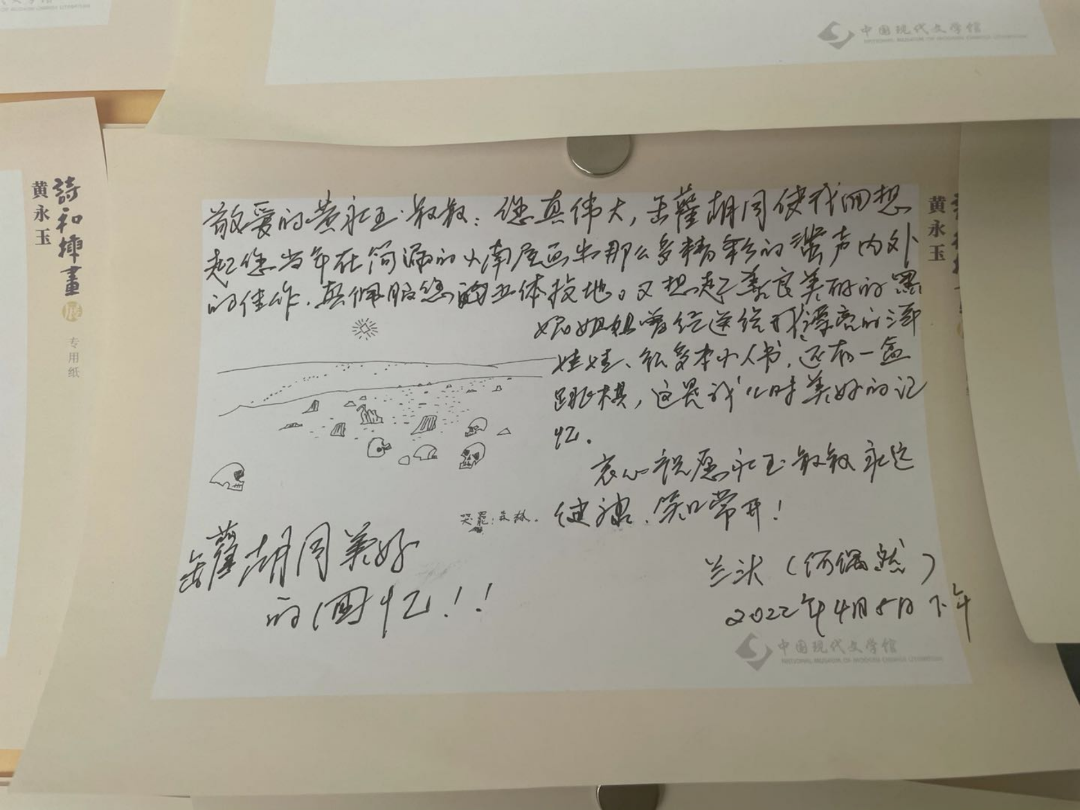 中国现代文学馆
詩和插畫展
黄永玉
专用纸
黄永玉
敬爱的黄永玉叔叔：您真伟大，罐胡同使我回想
起您当年在简陋的小南屋画出那么多精彩的誉声内外
的佳作，真佩服您的五体投地。又想起了善良美丽的黑
妮姐姐曾经送给我漂亮的洋
娃娃、很多本小人书，还有一盒
跳棋，这是我儿时美好的记
忆。
衷心祝愿永玉叔叔永远
健康，笑口常开！
罐胡同美好
的回忆！！
兰沃（何偶然）
2022年4月5日下午
中国现代文学馆